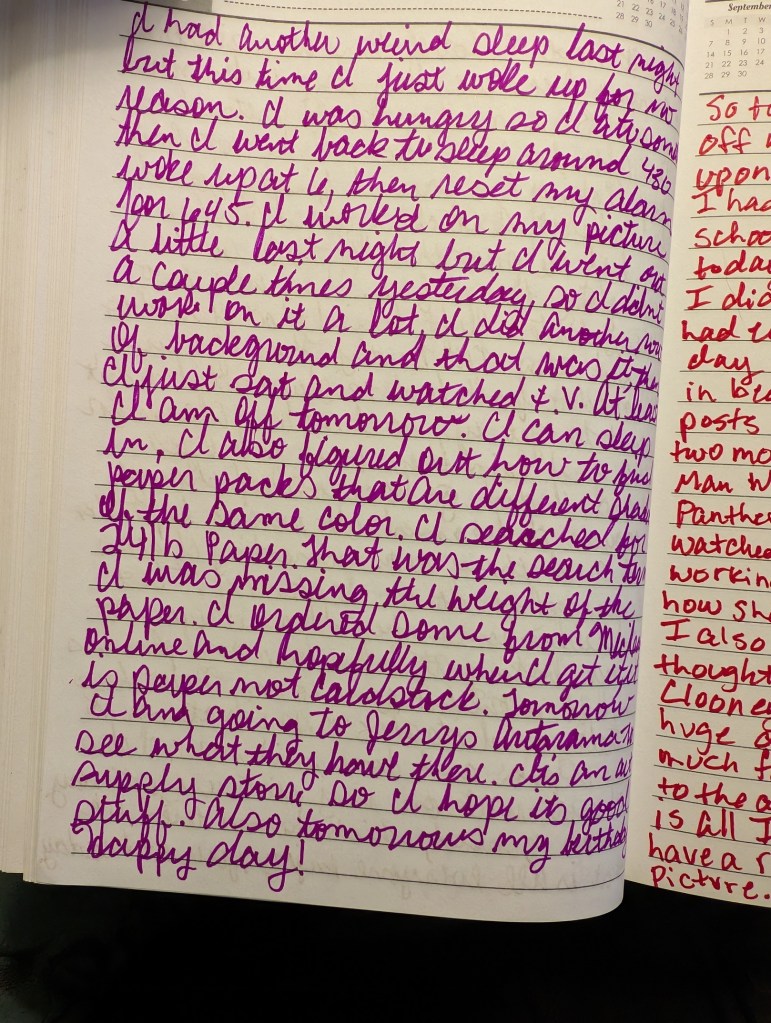 21 22 23 24
28 29 30
September
S M T W
1 2 3
7 8 9 10
14 15 16 17
21 22 23 24
28 29 30
I had another weird sleep last night
but this time I just woke up for no
reason. I was hungry so I ate some
then I went back to sleep around 430
woke up at 6, then reset my alarm
for 645. I worked on my picture
a little last night but I went out
a couple times yesterday, so I didn't
work on it a lot, I did another row
of backgrund and that was it, then
I just sat and watched t.v. At least
I am off tomorrow. I can sleep
in, I also figured out how to find
paper packs that are different shades
of the same color. I seached for
24lb paper. That was the search term
I was missing, the weight of the
paper. I ordered some from
online and hopefully when I get it it
is paper not cardstock. Tomorrow
I and going to Jerrys Artarama to
see what they have there. Its an art
supply store, so I hope its good
stuff. Also tomorrows my birthday
happy day!
So
off
upon
I had
school
today
I did
had
day
in
posts
two mo
Man
Panther
watched
working
how sh
I also
thought
Clooney
huge
much f
to the
is all I
have a r
picture.